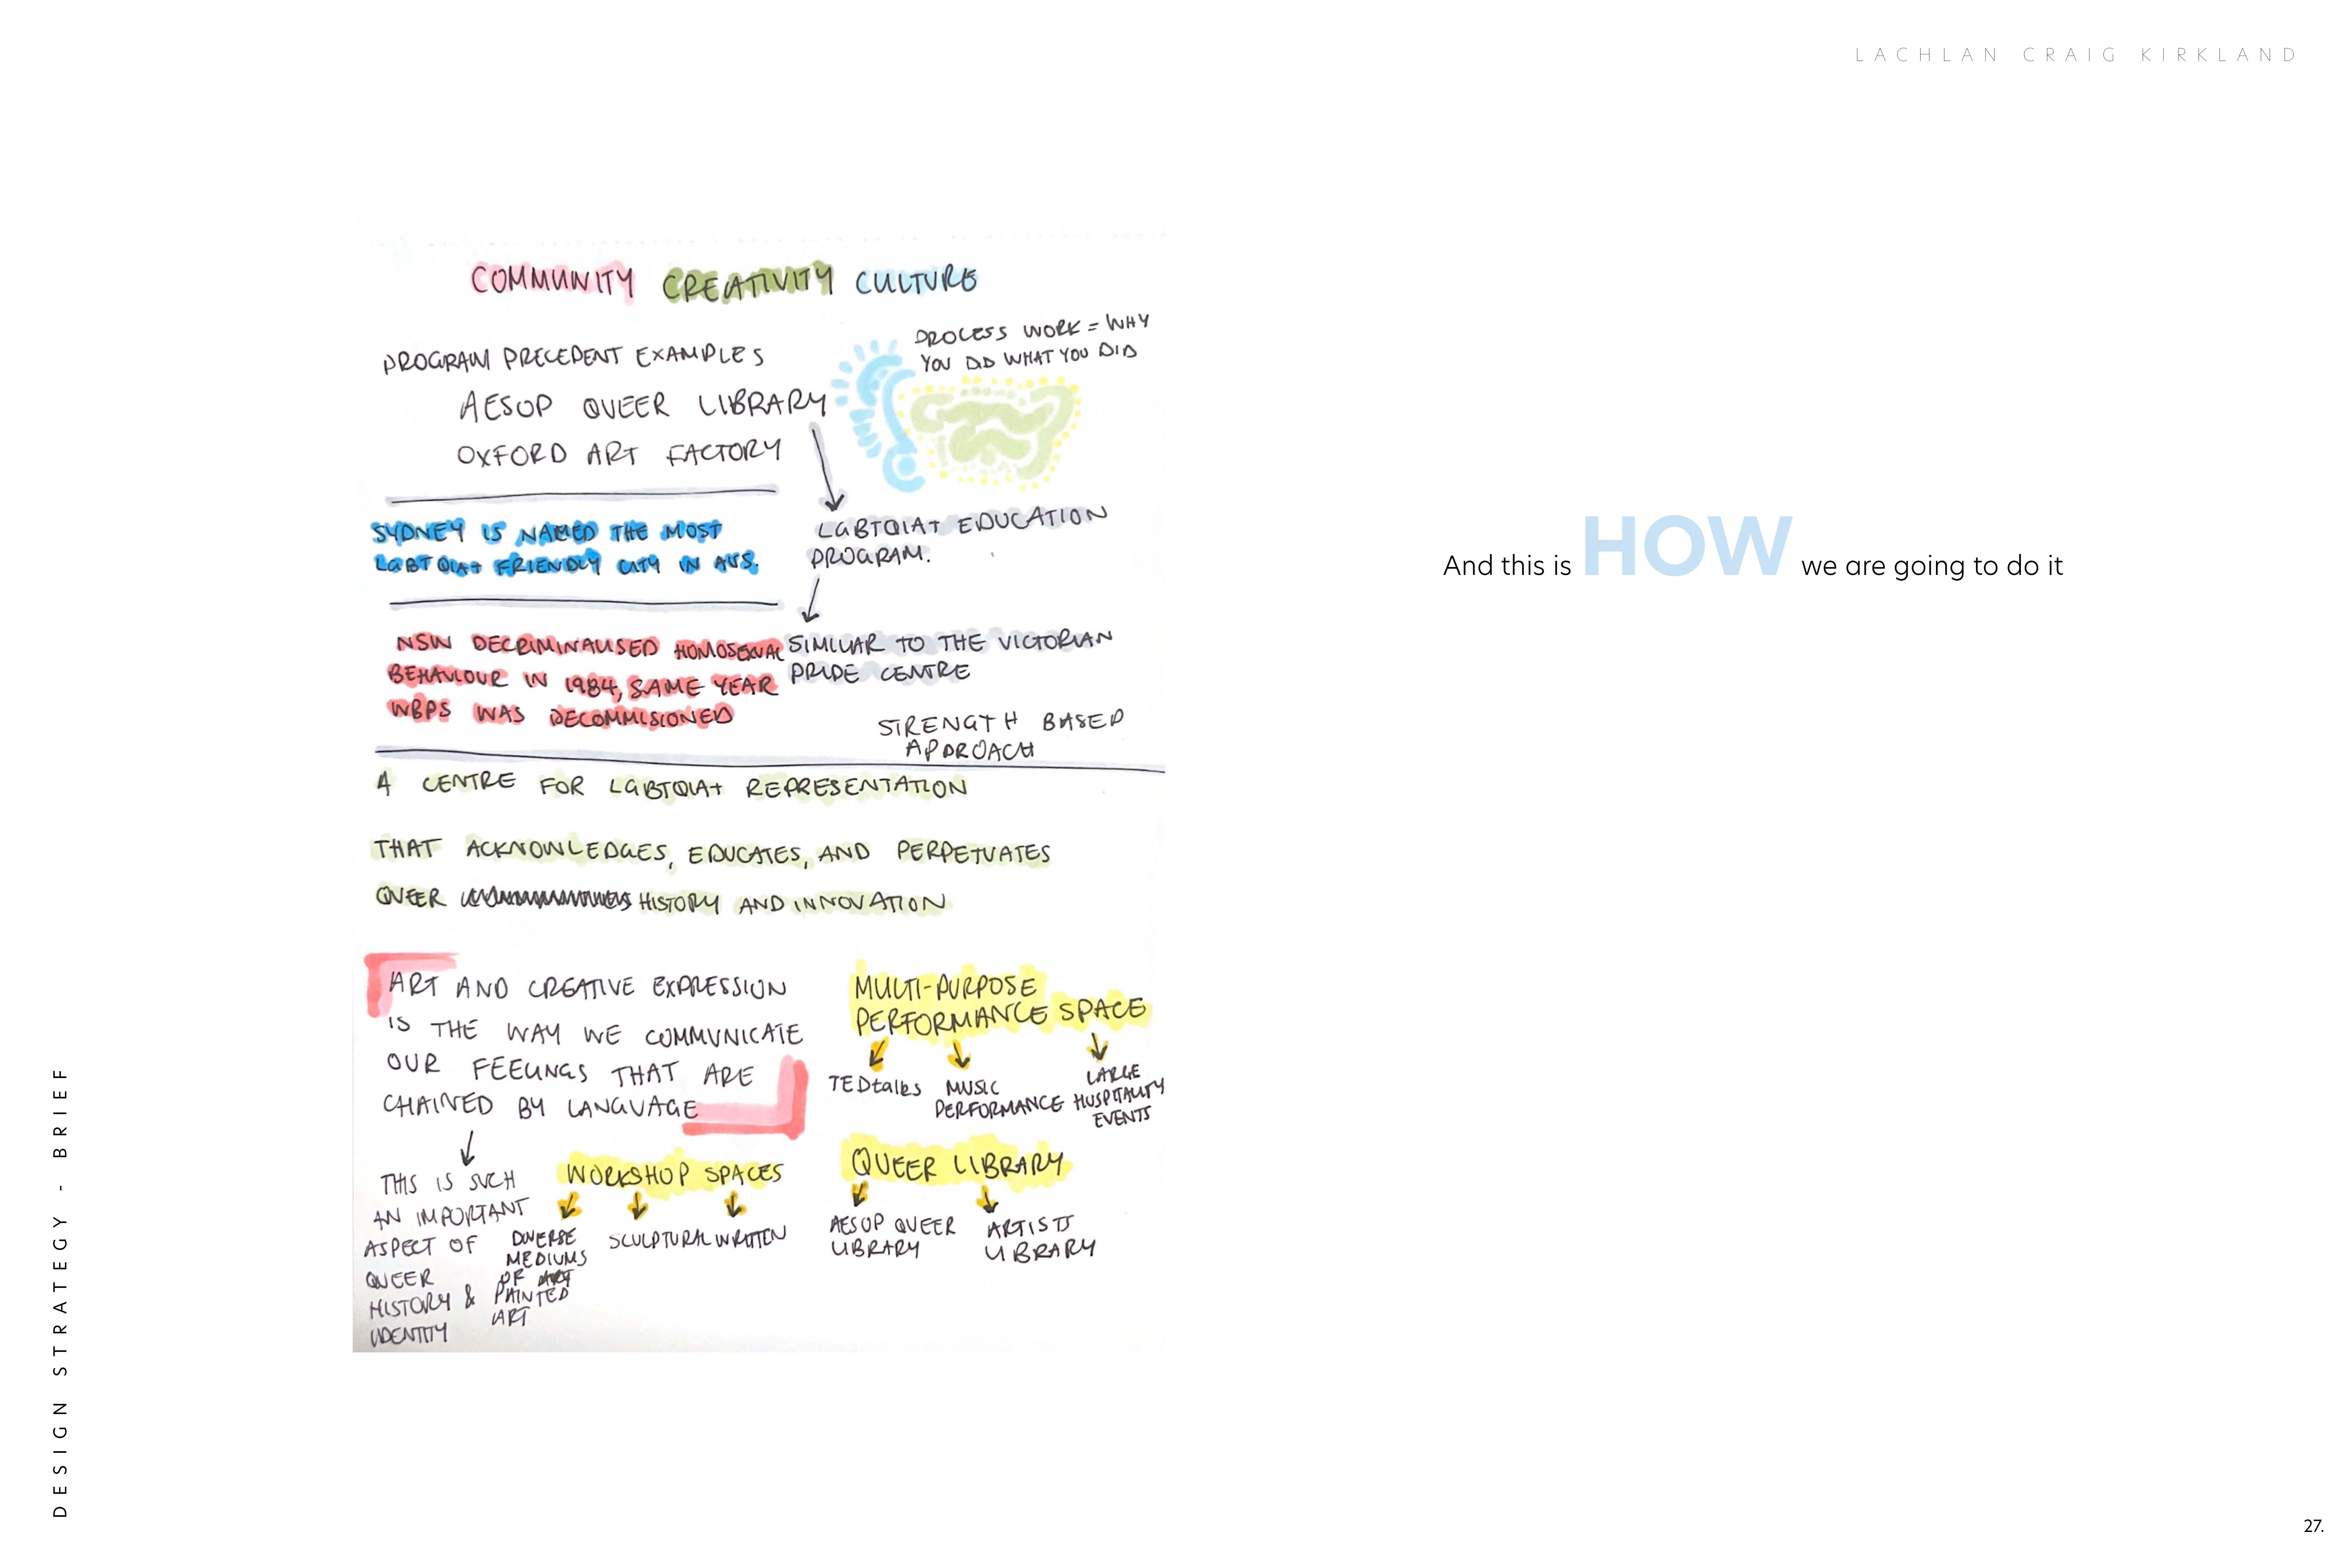 LACHLAN CRAIG KIRKLAND
COMMUNITY CREATIVITY CULTURE
PROCESS WORK = WHY
YOU DID WHAT YOU DID
PROGRAM PRECEDENT EXAMPLES
AESOP QUEER LIBRARY
OXFORD ART FACTORY
LGBTQIA+ EDUCATION
PROGRAM.
SYDNEY IS NAMED THE MOST
LGBTQIA+ FRIENDLY CITY IN AUS.
SIMILAR TO THE VICTORIAN
PRIDE CENTRE
NSW DECRIMINALISED HOMOSEXUAL
BEHAVIOUR IN 1984, SAME YEAR
WBPS WAS DECOMMISIONED
STRENGTH BASED
APPROACH
A CENTRE FOR LGBTQIA+ REPRESENTATION
THAT ACKNOWLEDGES, EDUCATES, AND PERPETUATES
QUEER HISTORY AND INNOVATION
ART AND CREATIVE EXPRESSION
IS THE WAY WE COMMUNICATE
OUR FEELINGS THAT ARE
CHAINED BY LANGUAGE
THIS IS SUCH
AN IMPORTANT
ASPECT OF
QUEER
HISTORY &
IDENTITY
MULTI-PURPOSE
PERFORMANCE SPACE
TEDtalks
MUSIC
PERFORMANCE
LARGE
HOSPITALITY
EVENTS
WORKSHOP SPACES
DIVERSE
MEDIUMS
OF ART
PAINTED
ART
SCULPTURAL
WRITTEN
QUEER LIBRARY
AESOP QUEER
LIBRARY
ARTISTS
LIBRARY
And this is HOW we are going to do it
DESIGN STRATEGY - BRIEF
27.